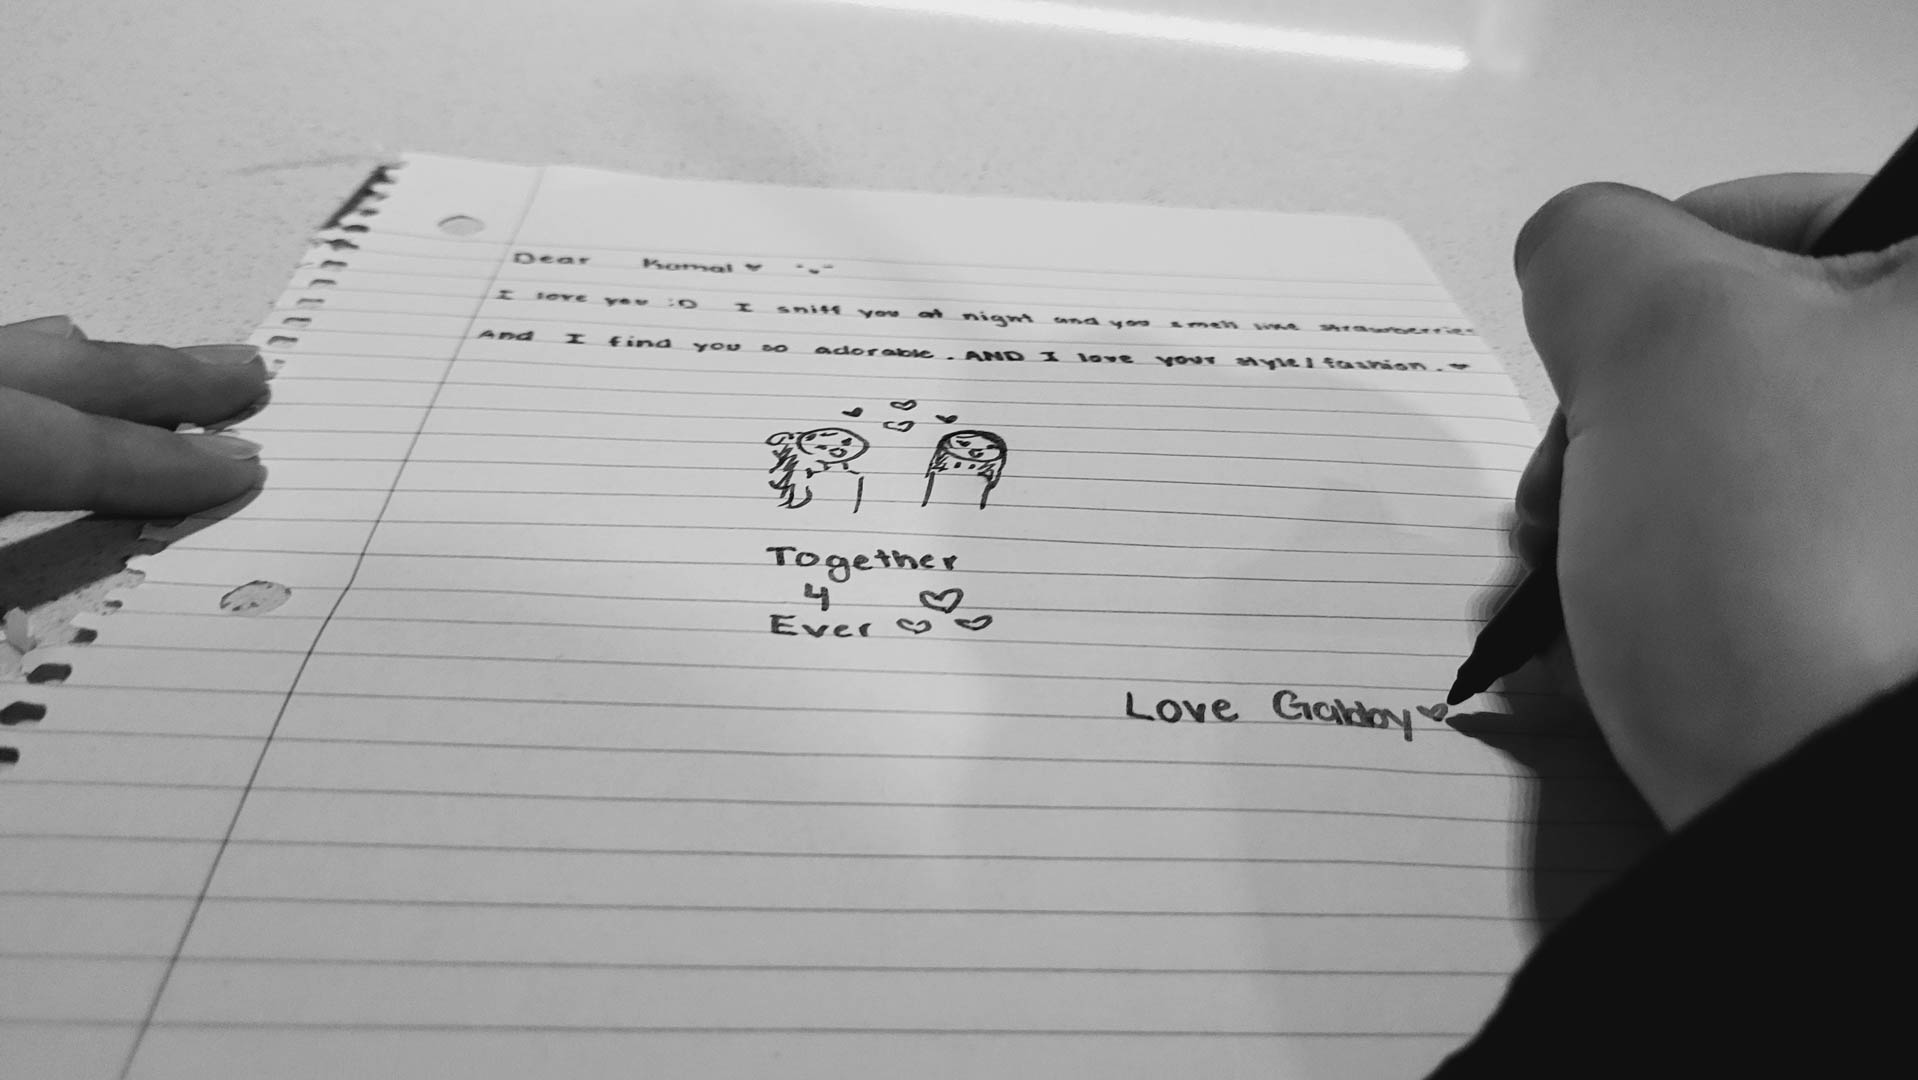 Dear Komal ♥
I love you :D I sniff you at night and you smell like strawberries
And I find you so adorable. AND I love your style/fashion. ♥
Together
4
Ever
Love Gabby ♥